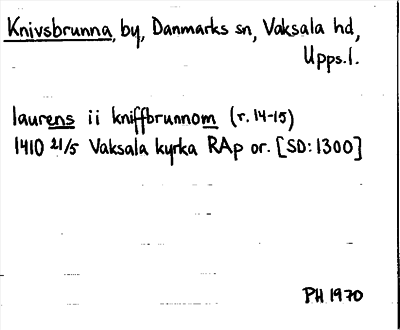 Knivsbrunna, by, Danmarks sn, Vaksala hd,
Upps.l.
laurens ii kniffbrunnom (r. 14-15)
1410 21/5 Vaksala kyrka RAp or. [SD:1300]
PH 1970